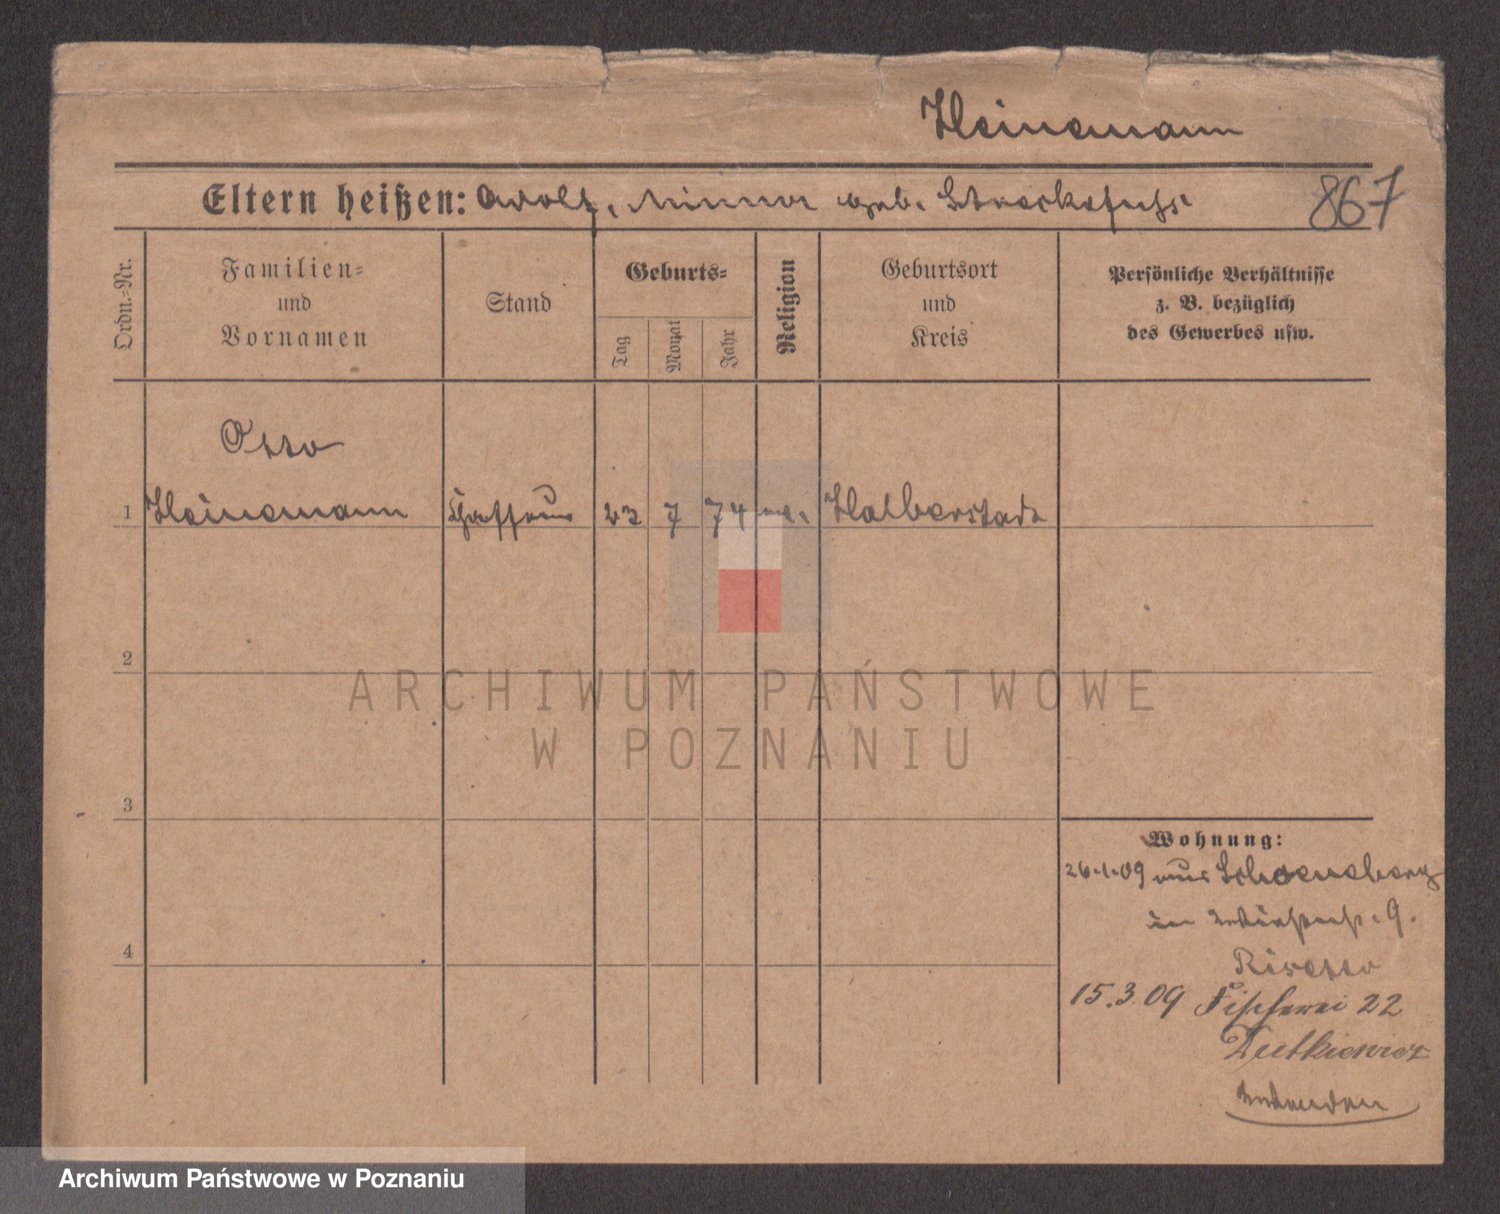 Heinemann
Eltern heißen: Adolf, Minna geb. Strecksfuss
867
Ordn.-Nr.
Familien-
und
Vornamen
Stand
Geburts-
Tag
Monat
Jahr
Religion
Geburtsort
und
Kreis
Persönliche Verhältnisse
z. B. bezüglich
des Gewerbes usw.
Otto
1 Heinemann 23 7 74 Halberstadt
2
ARCHIWUM PAŃSTWOWE
W POZNANIU
3
4
Wohnung:
26.1.09 aus Schoeneberg
in 9.
15.3.09 Fischerei 22
Dutkiewicz
Archiwum Państwowe w Poznaniu